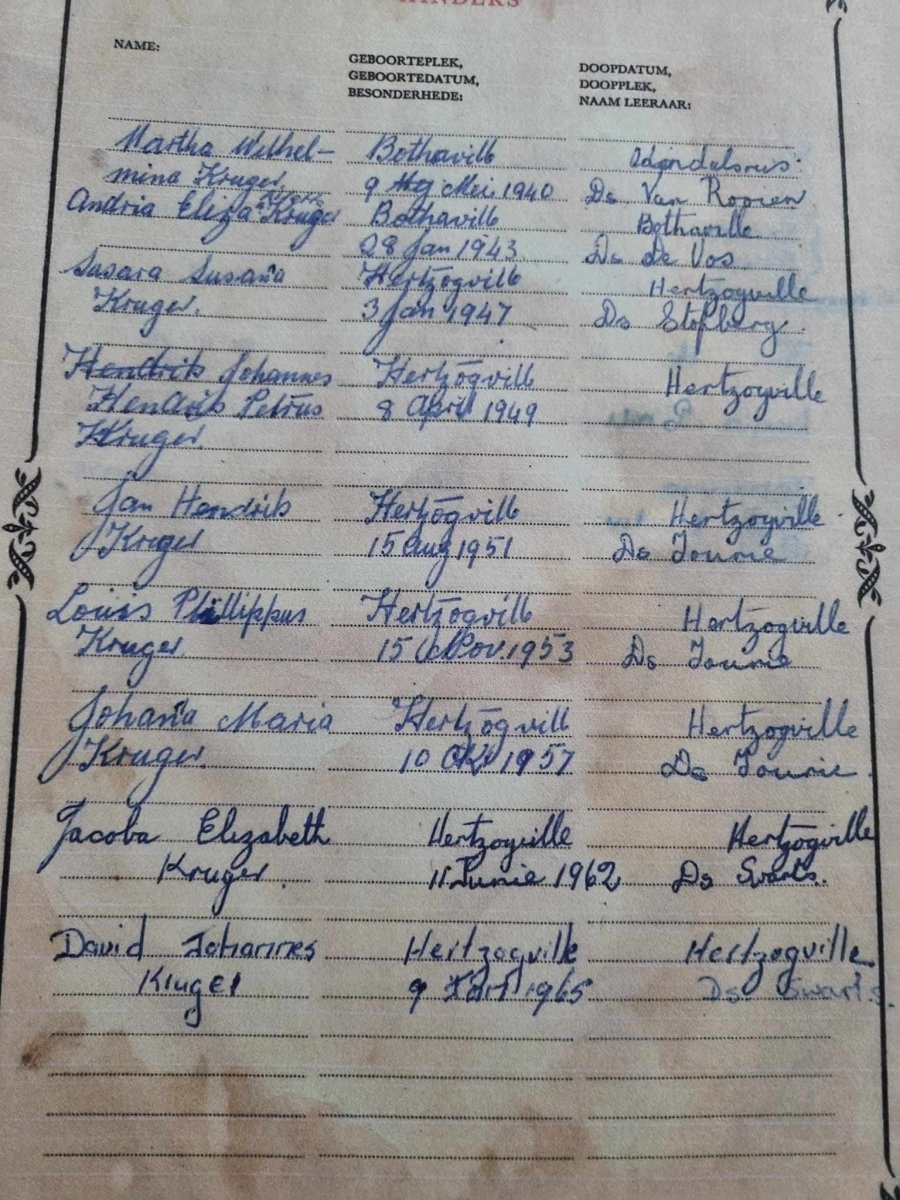 KINDERS
NAME:
GEBOORTEPLEK,
GEBOORTEDATUM,
BESONDERHEDE:
DOOPDATUM,
DOOPPLEK,
NAAM LEERAAR:
Martha Wilhel- Bothaville Odendalsrus.
mina Kruger 9 Mei 1940 Ds Van Rooien
Andria Eliza Kruger Bothaville Bothaville
28 Jan 1943 Ds De Vos
Susara Susana Hertzogville Hertzogville
Kruger. 3 Jan 1947 Ds Stofberg.
Hendrik Johannes Hertzogville Hertzogville
Hendrik Petrus 8 April 1949
Kruger
Jan Hendrik Hertzogville Hertzogville
Kruger 15 Aug 1951 Ds Fourie
Louis Phillippus Hertzogville Hertzogville
Kruger 15 Nov. 1953 Ds Fourie
Johana Maria Hertzogville Hertzogville
Kruger. 10 Okt 1957 Ds Fourie.
Jacoba Elizabeth Hertzogville Hertzogville
Kruger. 11 Junie 1962 Ds Swarts.
David Johannes Hertzogville Hertzogville
Kruger 9 1965 Ds Swarts.